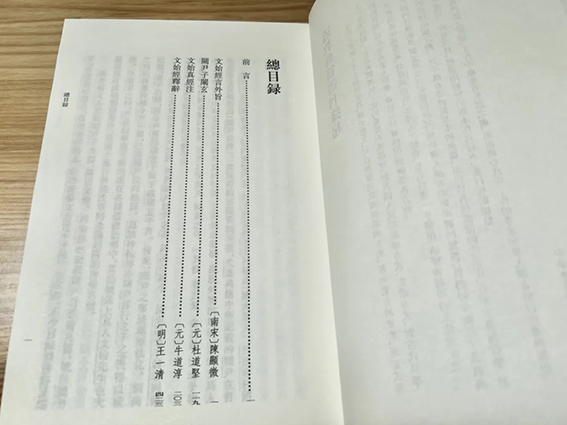 總目録
前言……一
文始經言外旨……〔南宋〕陳顯微 一
關尹子闡玄……〔元〕杜道堅 一一九
文始真經注……〔元〕牛道淳 二〇三
文始經釋辭……〔明〕王一清
總目録
一